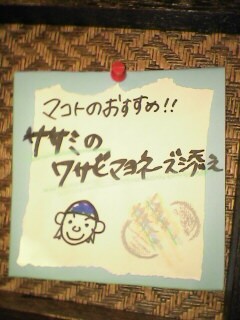 マコトのおすすめ!!
ササミの
ワサビマヨネーズ添え